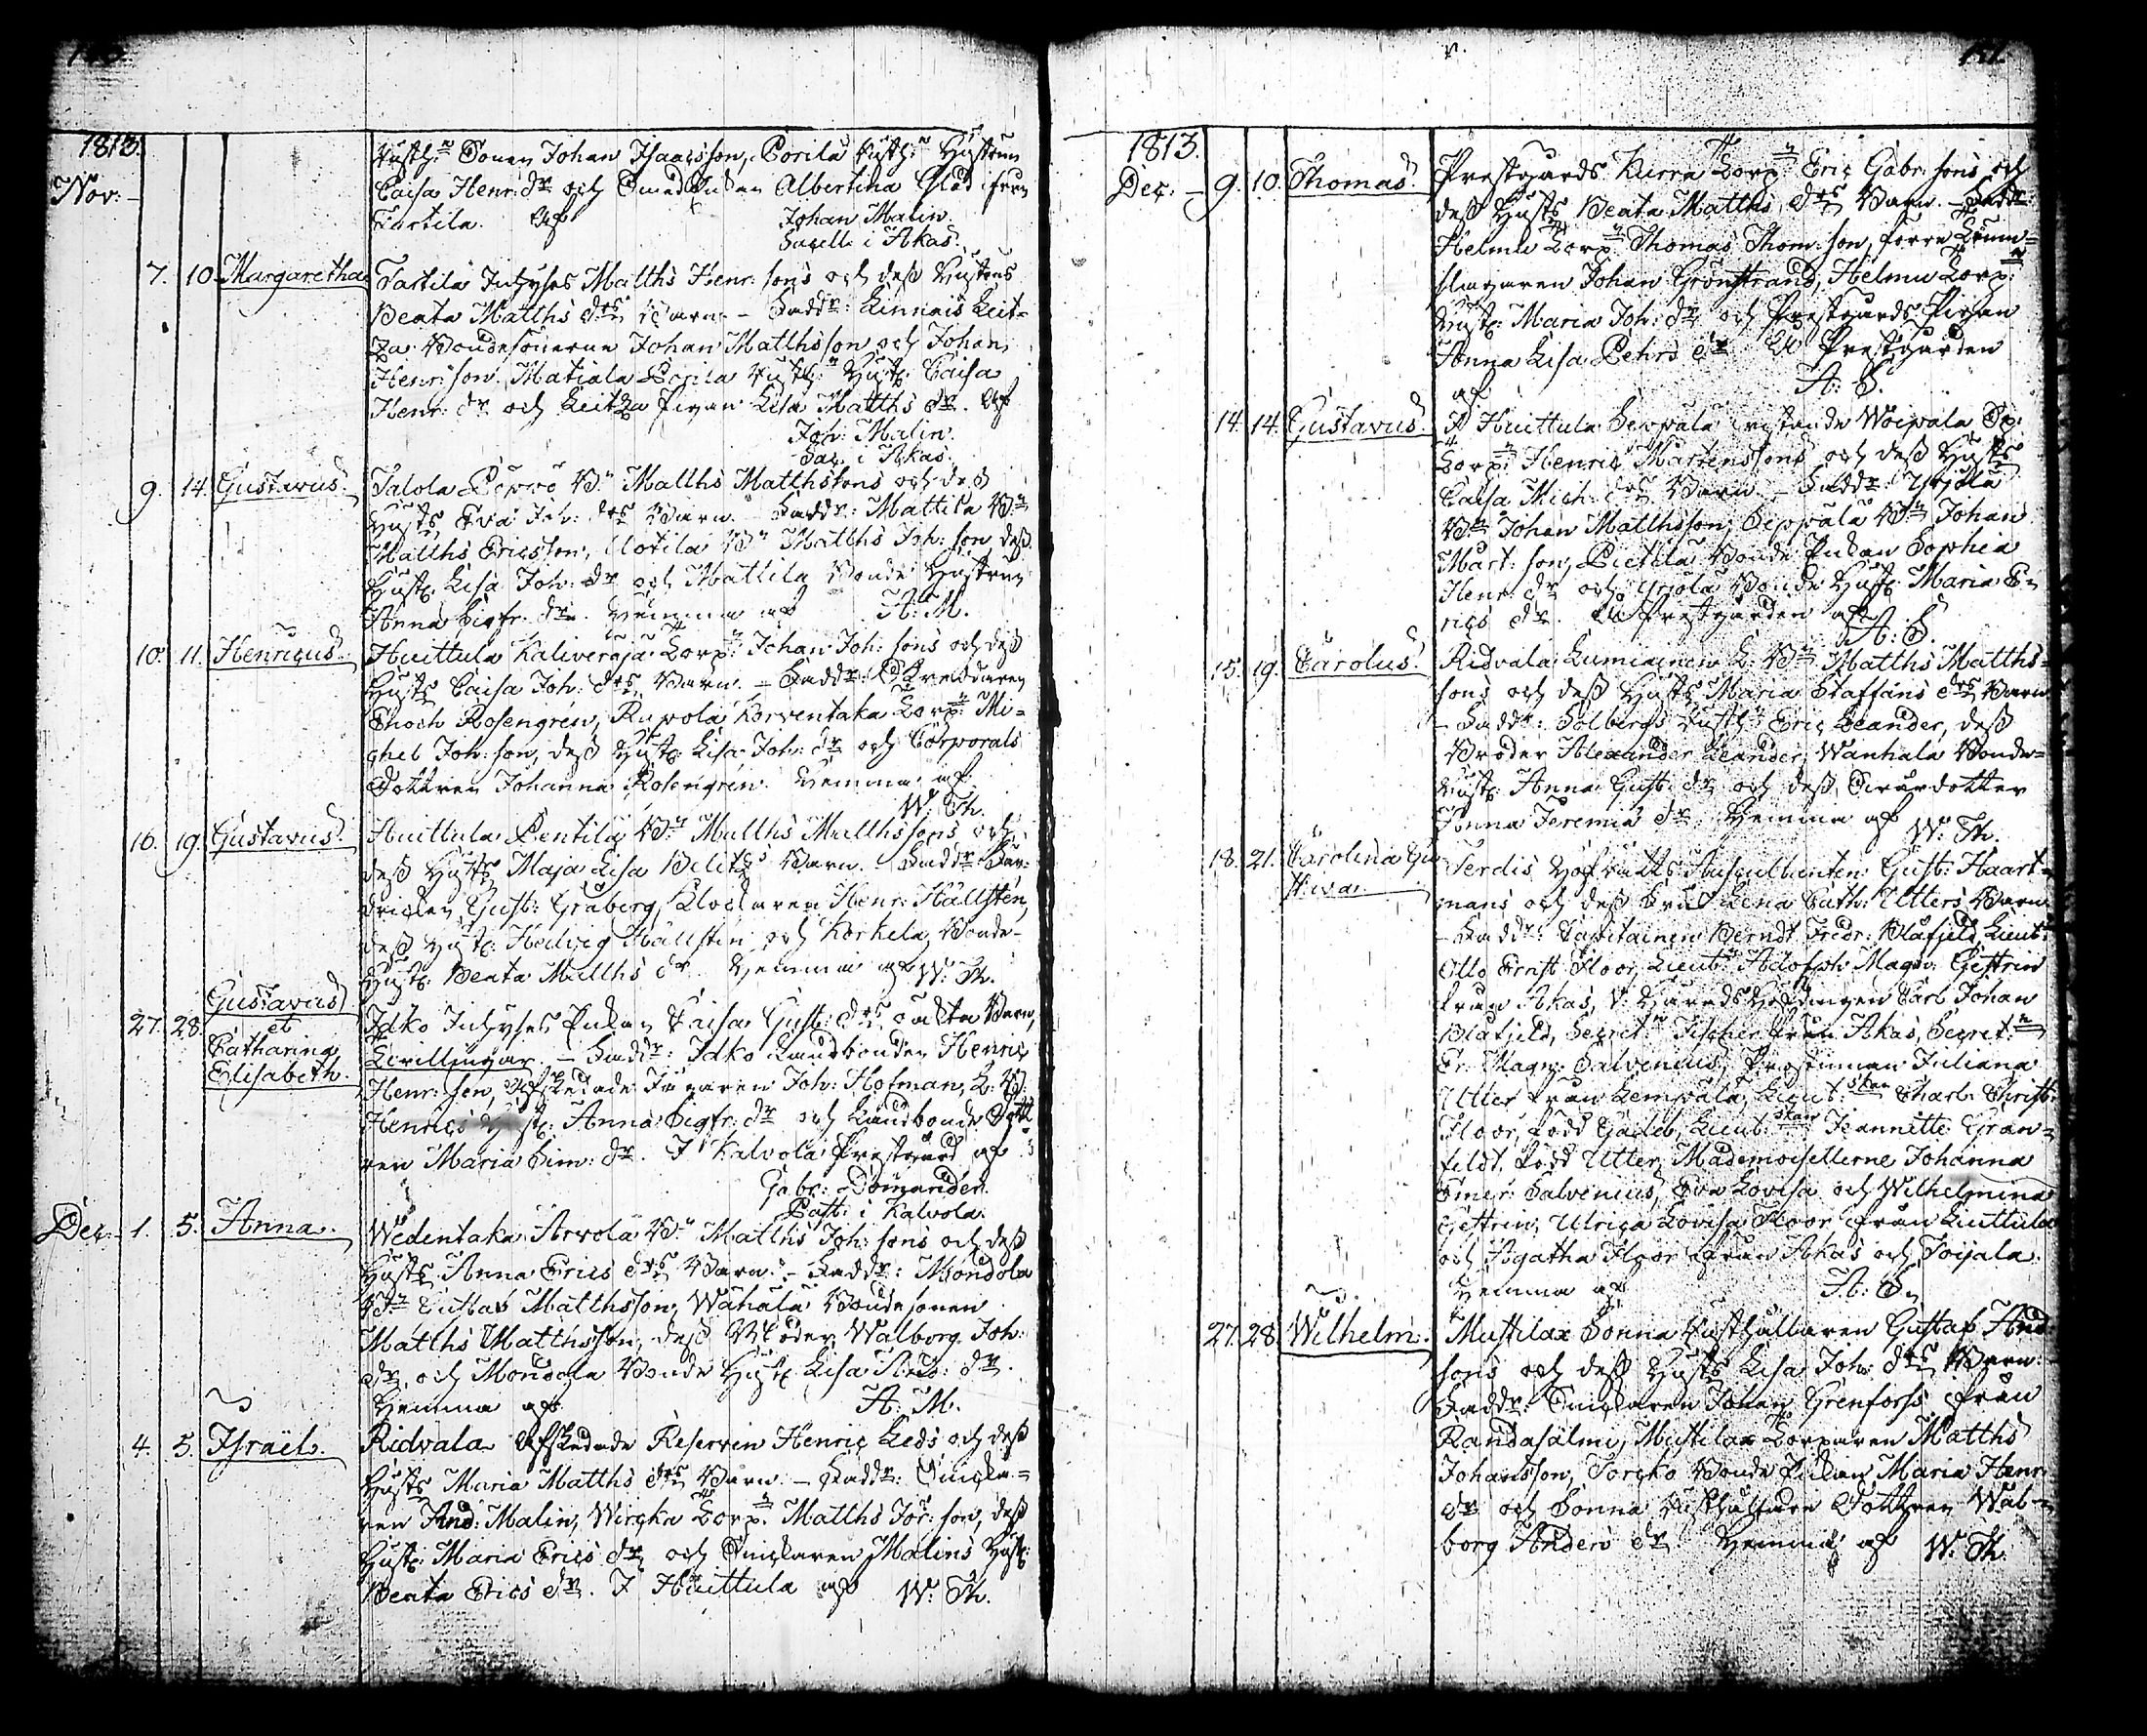 1813.
Nov:
Rusth:n Sonen Johan Isaacsson, Sorila Rusth:s Hustrun
Caisa Henr: dr och Smed Pukan Albertina Glad från
Tartila. Af Johan Malin.
Sacell. i Akas.
7. 10 Margaretha Tartila Inhyses Matths Henr: sons och dess Hustrus
Beata Matths drs Barn. – Faddr: Linnais Leit-
za Bondesönerne Johan Matthsson och Johan
Henr: son, Matiala Sorila Rusth: Hust: Caisa
Henr: dr och Leitza Pigan Lisa Matths dr. Af
Joh: Malin.
Sac. i Akas.
9. 14. Gustavus. Talola Seppä B:n Matths Matthssons och dess
Husts Eva Joh: drs Barn. Faddr: Mattila B:n
Matths Ericsson, Uotila B:n Matths Joh: son, dess
Hust: Lisa Joh: dr och Mattila Bonde Hustrun
Anna Sigfr: dr. Hemma af A: M.
10. 11. Henricus. Huittula Kaliveraja Torp:n Johan Joh: sons och dess
Husts Caisa Joh: drs Barn. – Faddr:
Enoch Rosengrén, Rapola Korventaka Torp:n Mi-
chel Joh: son, dess Hust: Lisa Joh: dr och Corporals
Dottren Johanna Rosengrén. Hemma af
W: Th.
16. 19. Gustavus. Huittula Pentila B:n Matths Matthssons och
dess Husts Maja Lisa Belitz Barn. Faddr:
Gust: Gråberg, Klockaren Henr: Hällstén,
dess Hust: Hedvig Hällstén och Korkela Bonde-
Hust: Beata Matths dr. Hemma af W: Th.
27. 28. Gustavus
et
Catharina
Elisabeth. Idko Inhyses Pukan Caisa Gust: drs oäkta Barn,
Tvillingar. – Faddr: Idko Landbonden Henric
Henr: son, Afskedade Jägaren Joh: Hofman, L: B:
Henrics Hust: Anna Sigfr: dr och Landbonde Dott-
ren Maria Sim: dr. I Kalvola Prestgård af
Gabr: Domander.
Past: i Kalvola.
Dec. 1. 5. Anna. Wedentaka Arvola B:n Matths Joh: sons och dess
Husts Anna Erics drs Barn. – Faddr: Mondola
B:n Gustav Matthsson, Wahala Bondesonen
Matths Matthsson, dess Moder Walborg Joh:
dr, och Mondola Bonde Hust: Lisa dr.
Hemma af A: M.
4. 5. Israël. Ridvala Afskedade Reserven Henric Leds och dess
Husts Maria Matths drs Barn. – Faddr: Snicka-
ren And: Malin, Wircka Torp:n Matths Joh: son, dess
Hust: Maria Erics dr, och Snickaren Malins Hust:
Beata Erics dr. I Huittula af W: Th.
1813.
Dec. 9. 10. Thomas. Prestgårds Kurra Torp:n Eric Gabr: sons och
dess Husts Beata Matths drs Barn. – Faddr:
Helmu Torp:n Thomas Thom: son, förre Trum-
slagaren Johan Grönstrand, Helmu Torp:n
Hust: Maria Joh: dr och Prestgårds Pigan
Anna Lisa Pehrs dr. På Prestgården
af A: S.
14. 14. Gustavus. I Huittula Seppälä Woipala
Torp:n Henric Mårtenssons och dess Husts
Caisa Mich: drs Barn. – Faddr: Yrjola
B:n Johan Matthsson, Seppälä B:n Johan
Mårt: son, Pietila Bonde Pukan Sophia
Henr: dr och Yrjola Bonde Hust: Maria E-
rics dr. På Prestgården af
A: S.
15. 19. Carolus. Ridvala Lumiainen L: B:n Matths Matths-
sons och dess Husts Maria Staffans drs Barn
– Faddr: Solbergs Rusth:n Eric Leander, dess
Broder Alexander Leander, Wanhala Bonde-
Hust: Anna Gust: dr och dess Sterdotter
Anna Jeremiæ dr. Hemma af W: Th.
18. 21. Carolina Gu-
stava. Jerdis Hofrätts Auscultanten Gust: Haart-
mans och dess Fru Lena Cath: Utters Barn
– Faddr: Capitainen Berndt Fredr: Blåfjeld, Lieut:
Otto Ernst Floor, Lieut: Adolph Magn: Gestrin
från Akas, V: Häradshöfdingen Carl Johan
Blåfjeld, Secret:n Fischer från Akas, Secret:n
Er: Magn: Salvenius, Prostinnan Juliana
Utter från Lempälä, Lieut:skan Charl: Christ:
Floor, född Gadeb, Lieut:skan Jeannette Gran-
feldt, född Utter, Mademoisellerne Johanna
Emer: Salvenius, Eva Lovisa och Wilhelmina
Gestrin, Ulrica Lovisa Floor från Luttula
och Agatha Floor från Akas och Toijala.
Hemma af A: S.
27. 28. Wilhelm. Mustilax Sonna Rusthållaren Gustaf And:
sons och dess Husts Lisa Joh: drs Barn.
Faddr: Snickaren Johan Grenforss från
Randasalmi, Mustilax Torparen Matths
Johansson, Torcko Bonde Pukan Maria Henr:
dr och Sonna Rusthållare Dottren Wal-
borg Anders dr. Hemma af W: Th.